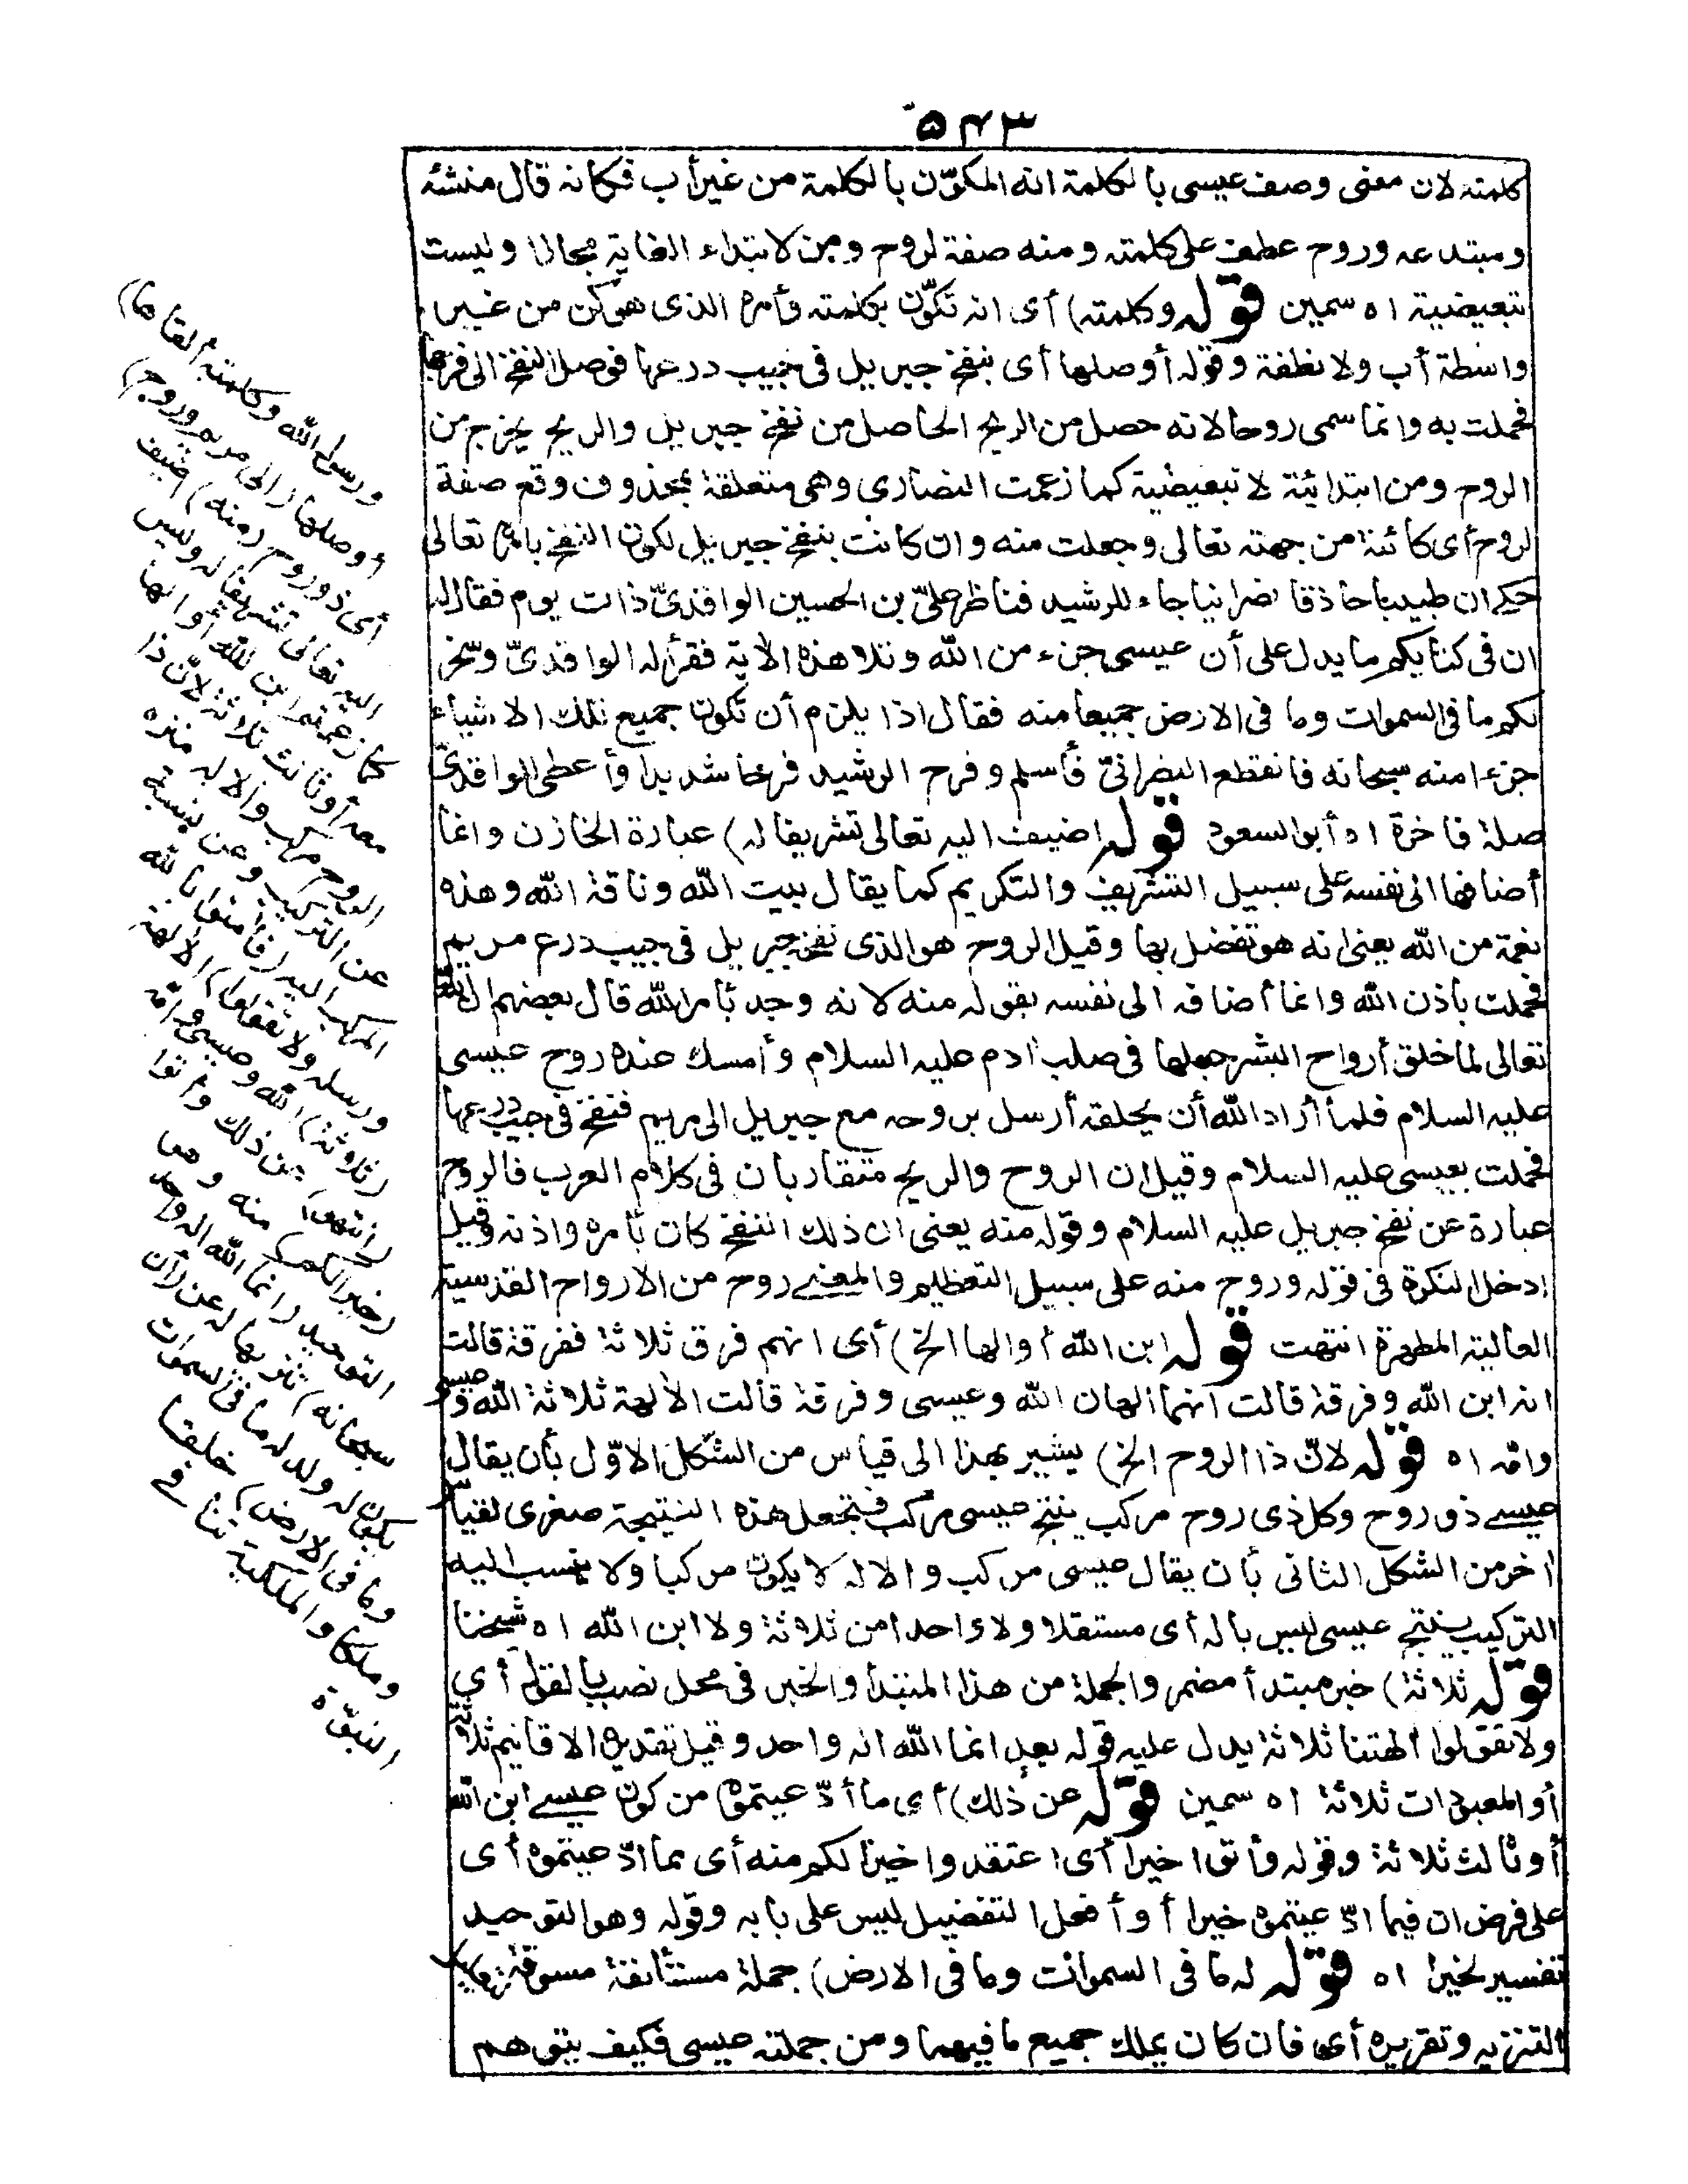 ٥٤٣
كلمته لان معنى وصف عيسى بالكلمة انه المكوّن بالكلمة من غير أب فكانه قال منشئه
ومبتدعه وروح عطف على كلمته ومنه صفة لروح ومن لابتداء الغاية مجازا وليست
تبعيضية اه سمين قوله وكلمته) أى انه تكوّن بكلمته وأمره الذى هو كن من غير
واسطة أب ولا نطفة وقوله أوصلها أى بنفخ جبريل فى جيب درعها فوصل النفخ الى فرجها
فحملت به وانما سمى روحا لانه حصل من الريح الحاصل من نفخ جبريل والريح يخرج من
الروح ومن ابتدائية لا تبعيضية كما زعمت النصارى وهى متعلقة بمحذوف وقع صفة
لروح أى كائنة من جهته تعالى وجعلت منه وان كانت بنفخ جبريل لكون النفخ بامره تعالى
حكى ان طبيبا حاذقا نصرانيا جاء للرشيد فناظر علىّ بن الحسين الواقدىّ ذات يوم فقال له
ان فى كتابكم ما يدل على أن عيسى جزء من الله وتلا هذه الاية فقرأ له الواقدىّ وسخر
لكم ما فى السموات وما فى الارض جميعا منه فقال اذا يلزم أن تكون جميع تلك الاشياء
جزءا منه سبحانه فانقطع النصرانىّ فأسلم وفرح الرشيد فرحا شديدا وأعطى الواقدىّ
صلة فاخرة اه أبو السعود قوله اضيف اليه تعالى تشريفا له) عبارة الخازن وانما
أضافها الى نفسه على سبيل التشريف والتكريم كما يقال بيت الله وناقة الله وهذه
نعمة من الله يعنى انه هو تفضل بها وقيل الروح هو الذى نفخ جبريل فى جيب درع مريم
فحملت باذن الله وانما أضافه الى نفسه بقوله منه لانه وجد بأمر الله قال بعضهم ان الله
تعالى لما خلق أرواح البشر جعلها فى صلب ادم عليه السلام وأمسك عنده روح عيسى
عليه السلام فلما أراد الله أن يخلقه أرسل بروحه مع جبريل الى مريم فنفخ فى جيب درعها
فحملت بعيسى عليه السلام وقيل ان الروح والريح متقاربان فى كلام العرب فالروح
عبارة عن نفخ جبريل عليه السلام وقوله منه يعنى ان ذلك النفخ كان بأمره واذنه وقيل
ادخل النكرة فى قوله وروح منه على سبيل التعظيم والمعنى روح من الارواح القدسية
العالية المطهرة انتهت قوله ابن الله أو الها الخ) أى انهم فرق ثلاثة ففرقة قالت
انه ابن الله وفرقة قالت انهما الهان الله وعيسى وفرقة قالت الألهة ثلاثة الله وعيسى
وامه اه قوله لانّ ذا الروح الخ) يشير بهذا الى قياس من الشكل الاوّل بأن يقال
عيسى ذو روح وكل ذى روح مركب ينتج عيسى مركب فتجعل هذه النتيجة صغرى لقياس
اخر من الشكل الثانى بأن يقال عيسى مركب والاله لا يكون مركبا ولا ينسب اليه
التركيب ينتج عيسى ليس باله أى مستقلا ولا واحدا من ثلاثة ولا ابن الله اه شيخنا
قوله ثلاثة) خبر مبتدأ مضمر والجملة من هذا المبتدأ والخبر فى محل نصب بالقول أى
ولا تقولوا الهتنا ثلاثة يدل عليه قوله بعد انما الله اله واحد وقيل تقديره الاقانيم ثلاثة
أو المعبودات ثلاثة اه سمين قوله عن ذلك) أى ما أدّعيتموه من كون عيسى ابن الله
أو ثالث ثلاثة وقوله وأتوا خيرا أى اعتقدوا خيرا لكم منه أى مما ادّعيتموه أى
على فرض ان فيما ادّعيتموه خيرا أو أفعل التفضيل ليس على بابه وقوله وهو التوحيد
تفسير لخيرا اه قوله له ما فى السموات وما فى الارض) جملة مستأنفة مسوقة لتعليل
التنزيه وتقريره أى فان كان يملك جميع ما فيهما ومن جملته عيسى فكيف يتوهم
ورسول الله وكلمته ألقاها)
أوصلها (الى مريم وروح)
أى ذو روح (منه) اضيف
اليه تعالى تشريفا له وليس
كما زعمتم ابن الله أو الها
معه أو ثالث ثلاثة لانّ ذا
الروح مركب والاله منزه
عن التركيب وعن نسبة
المركب اليه (فأمنوا بالله
ورسله ولا تقولوا) الألهة
(ثلاثة) الله وعيسى وامه
(انتهوا) عن ذلك وأتوا
(خيرا لكم) منه وهو
التوحيد (انما الله اله واحد
سبحانه) تنزيها له عن (أن
يكون له ولد له ما فى السموات
وما فى الارض) خلقا
وملكا والملكية تنافى
النبوّة